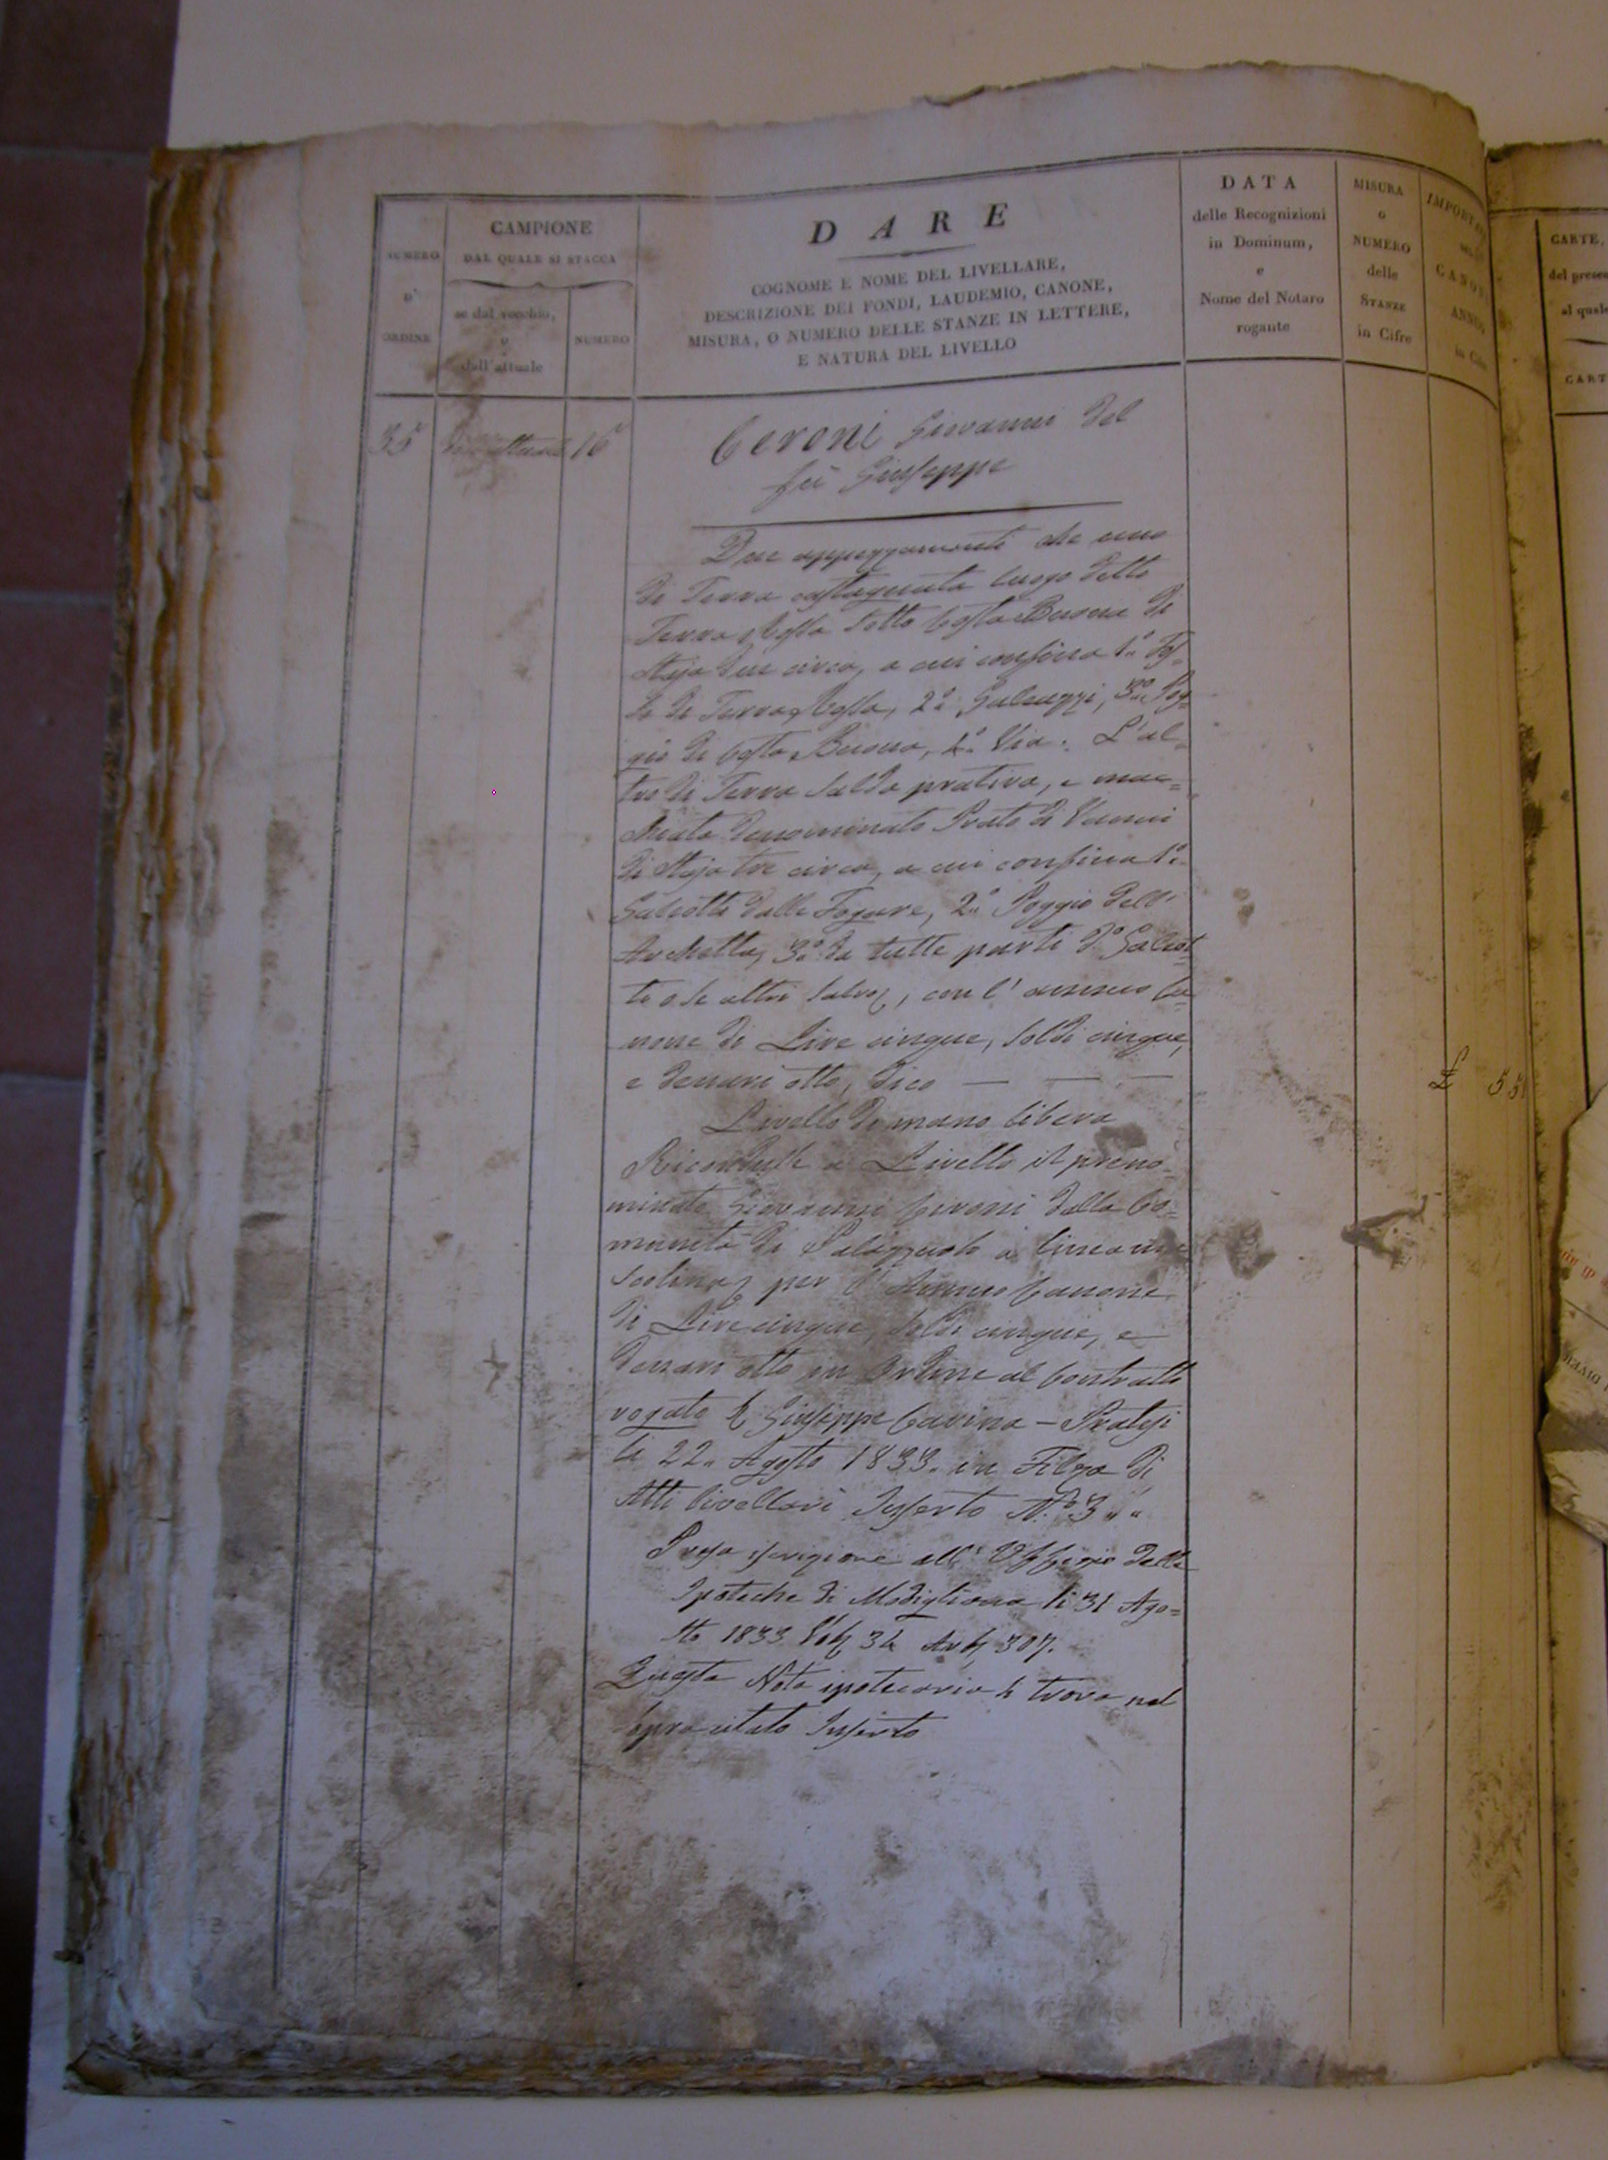 NUMERO
D'
ORDINE
CAMPIONE
DAL QUALE SI STACCA
se dal vecchio,
o
dall'attuale
NUMERO
DARE
COGNOME E NOME DEL LIVELLARE,
DESCRIZIONE DEI FONDI, LAUDEMIO, CANONE,
MISURA, O NUMERO DELLE STANZE IN LETTERE,
E NATURA DEL LIVELLO
DATA
delle Recognizioni
in Dominum,
e
Nome del Notaro
rogante
MISURA
o
NUMERO
delle
STANZE
in Cifre
CANONE
CARTE,
al quale
35 attuale 16
Ceroni Giovanni del
fù Giuseppe
Due appezzamenti che uno
di Terra castagnata luogo detto
Terra Rossa sotto Costa Buona di
Staja due circa, a cui confina 1.° Fos-
so di Terra Rossa, 2.° 3.° Pog-
gio di Costa Buona, 4.° Via. L'al=
tro di Terra salda prativa, e mac=
chiata denominato Prato di Vanni
di Staja tre circa, a cui confina 1.°
Galeotti dalle 2.° Poggio dell'
3.° da tutte parti d.° Galeot=
ti o se altri con l'annuo Ca=
none di Lire cinque, soldi cinque,
e denari otto, dico — — —
£ 5 5
Livello di mano libera
Ricondusse a Livello il preno=
minato Giovanni Ceroni dalla Co=
munità di Palazzuolo a linea ma
scolina per l'Annuo Canone
di Lire cinque, soldi cinque, e
denari otto in ordine al Contratto
rogato Giuseppe Gavina – Pratesi
li 22. Agosto 1833. in Filza di
Atti livellari Inserto N.° 3 "
Presa iscrizione all'Uffizio delle
Ipoteche di Modigliana li 31 Ago=
sto 1833. 34 307.
Questa Nota ipotecaria si trova nel
sopra citato Inserto